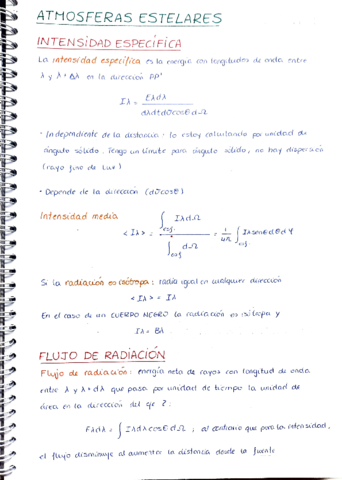 ATMOSFERAS ESTELARES
INTENSIDAD ESPECÍFICA
La intensidad específica es la energía con longitudes de onda entre
λ y λ+Δλ en la dirección PP'
Iλ = Eλdλ / dλdtdσcosθdΩ
· Independiente de la distancia: lo estoy calculando por unidad de
ángulo sólido. Tengo un límite para ángulo sólido, no hay dispersión
(rayo fino de luz)
· Depende de la dirección (dσcosθ)
Intensidad media
<Iλ> = ∫esf. IλdΩ / ∫esf dΩ = 1/4π ∫esf Iλsenθdθdφ
Si la radiación es isótropa: radia igual en cualquier dirección
<Iλ> = Iλ
En el caso de un CUERPO NEGRO la radiación es isótropa y
Iλ = Bλ
FLUJO DE RADIACIÓN
Flujo de radiación: energía neta de rayos con longitud de onda
entre λ y λ+dλ que pasa por unidad de tiempo la unidad de
área en la dirección del eje z:
Fλdλ = ∫ Iλdλcosθ dΩ ; al contrario que para la intensidad,
el flujo disminuye al aumentar la distancia desde la fuente